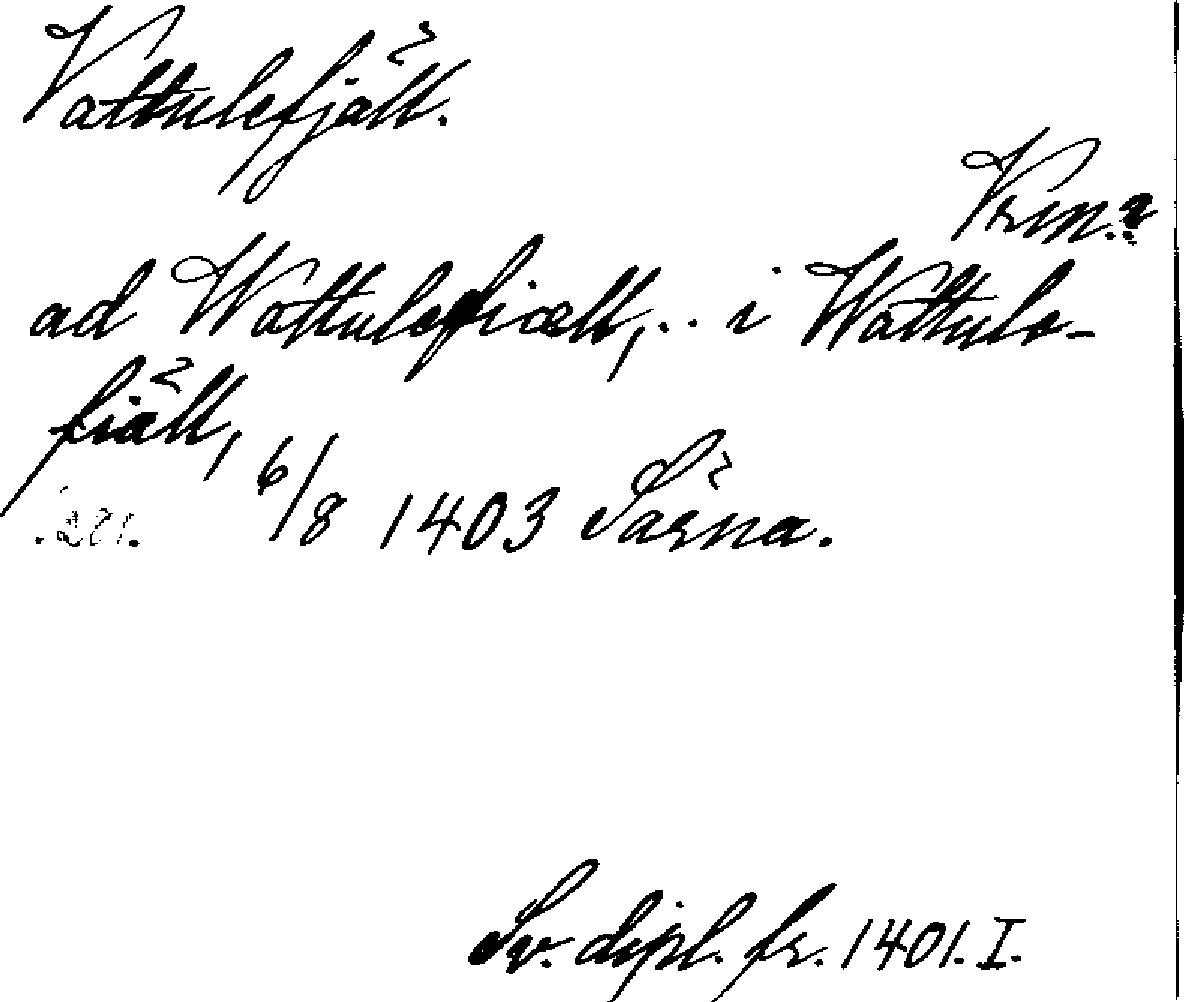 Vattulefjäll.
Vrm.?
ad Wattulefiæll, .. i Wattule-
fiäll,
.281. 6/8 1403 Särna.
Sv. dipl. fr. 1401. I.